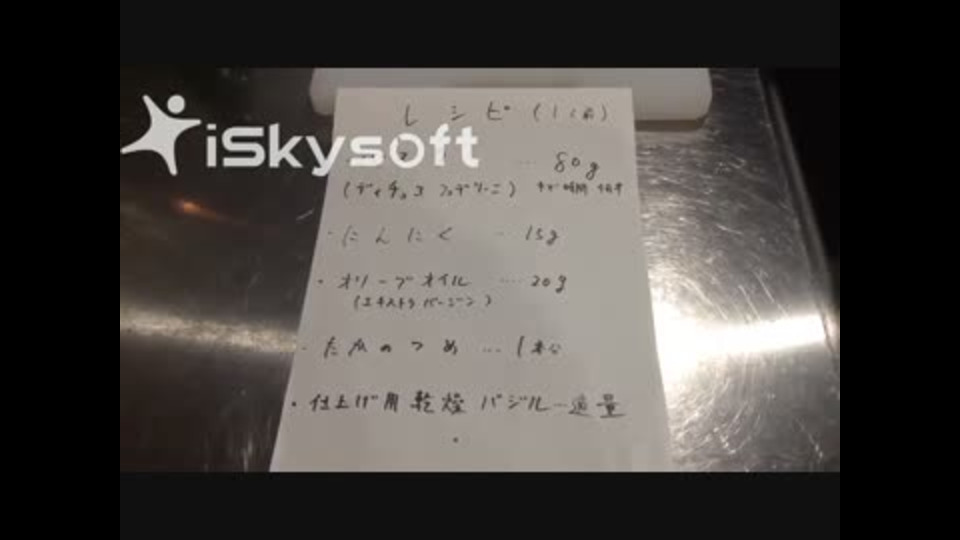 レシピ (1人前)
iSkysoft
… 80g
(ディチェコ フェデリーニ) ゆで時間
・にんにく … 15g
・オリーブオイル …. 20g
(エキストラバージン)
・たかのつめ … 1本分
・仕上げ用乾燥バジル…適量